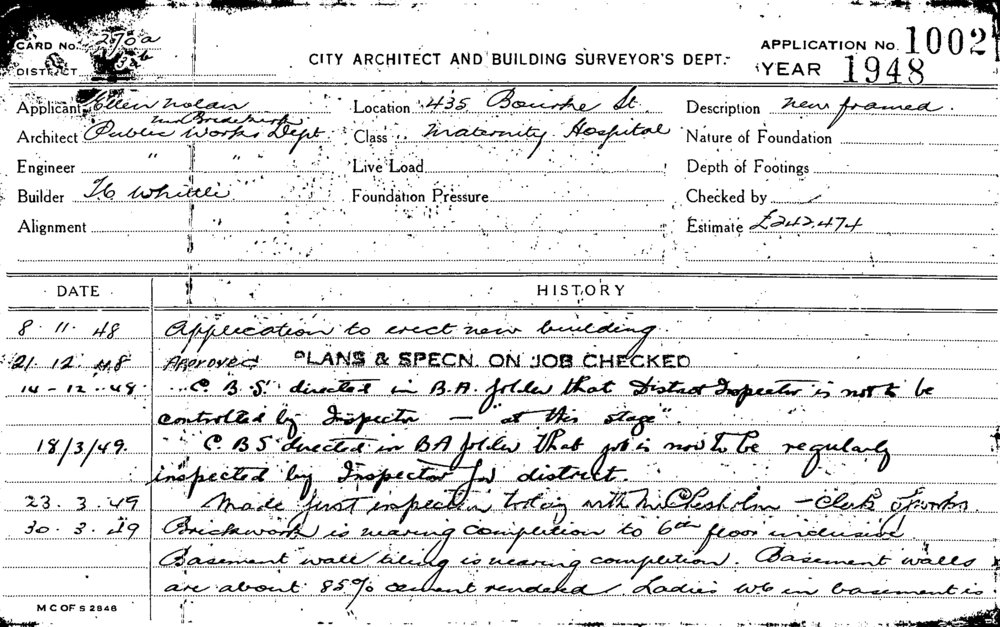 CARD No. 270a
DISTRICT
CITY ARCHITECT AND BUILDING SURVEYOR'S DEPT.
APPLICATION No. 1002
YEAR 1948
Applicant Ellen Nolan Location 435 Bourke St. Description new framed.
Architect Public Works Dept Class Maternity Hospital Nature of Foundation
Engineer " " Live Load Depth of Footings
Builder Whittle Foundation Pressure Checked by
Alignment Estimate £242,474
DATE HISTORY
8 11 48 Application to erect new building.
21 12 48 APPROVED PLANS & SPECN. ON JOB CHECKED
14-12-48. C.B.S. directed in B.A. folder that District Inspector is not to be
controlled by Inspector — "at this stage".
18/3/49. C.B.S directed in BA folder that job is now to be regularly
inspected by Inspector for district.
23.3.49 Made first inspection today with Mr Chisholm - Clerk of works.
30.3.49 Brickwork is nearing completion to 6th floor inclusive
Basement wall tiling is nearing completion. Basement walls
are about 85% cement rendered. Ladies W6 in basement is
M C OF S 2846